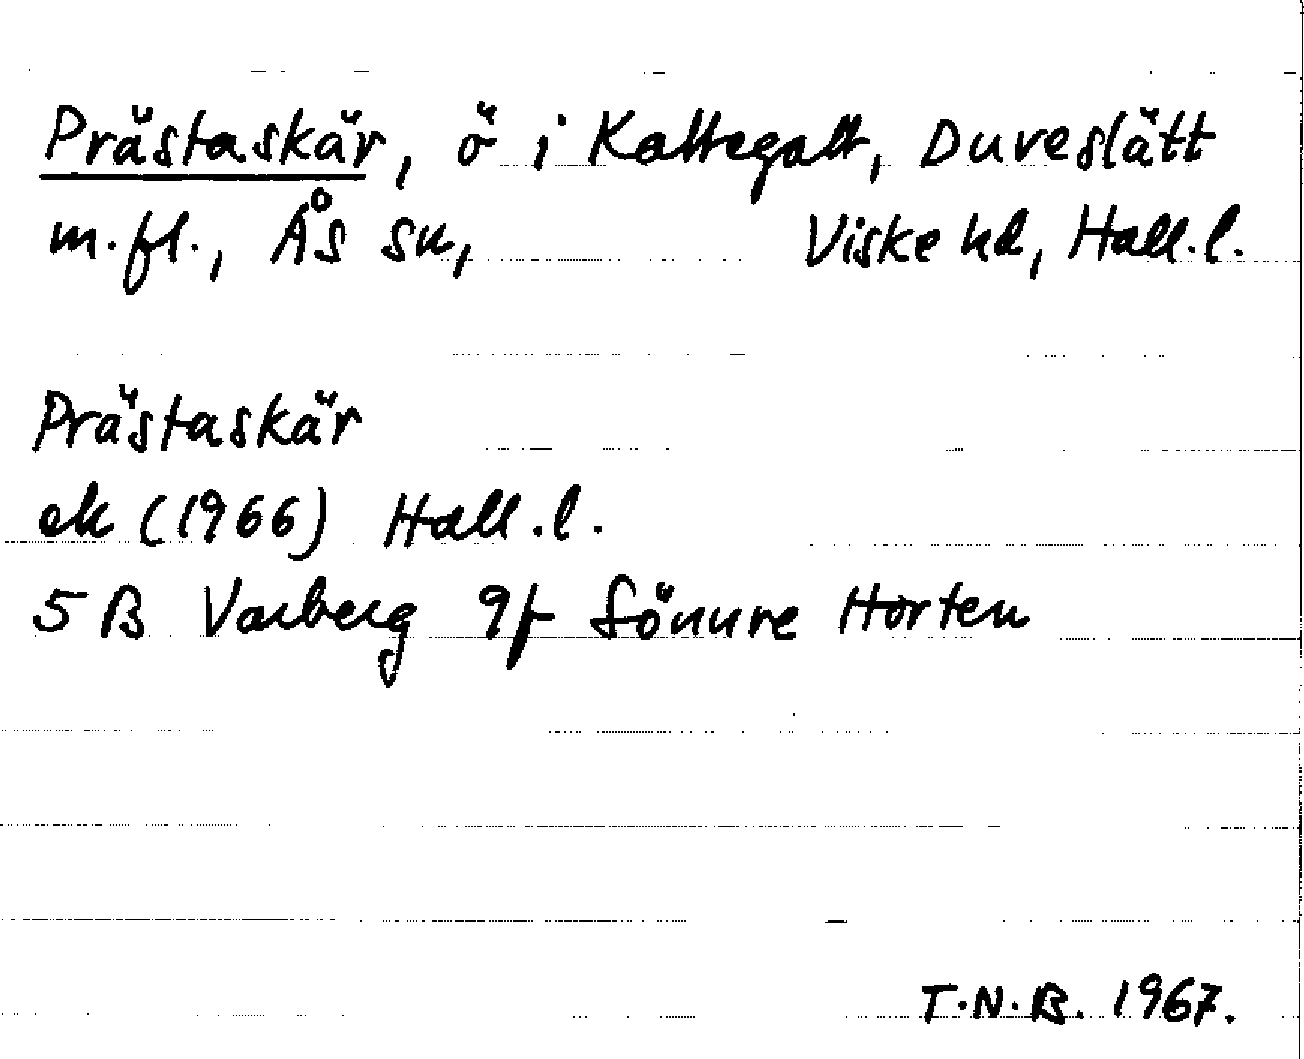 Prästaskär, ö i Kattegatt, Duveslätt
m.fl., Ås sn, Viske hd, Hall.l.
Prästaskär
ek (1966) Hall.l.
5 B Varberg 9f Sönnre Horten
T.N.B. 1967.